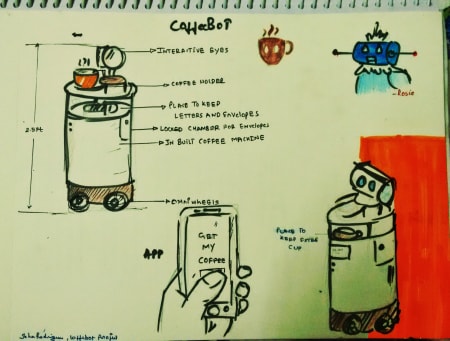 CoffeeBot
INTERACTIVE EYES
COFFEE HOLDER
PLACE TO KEEP
LETTERS AND ENVELOPES
LOCKED CHAMBER FOR ENVELOPES
IN BUILT COFFEE MACHINE
2.5ft
OMNIWHEELS
-Rosie
APP
GET
MY
COFFEE
PLACE TO
KEEP EXTRA
CUP